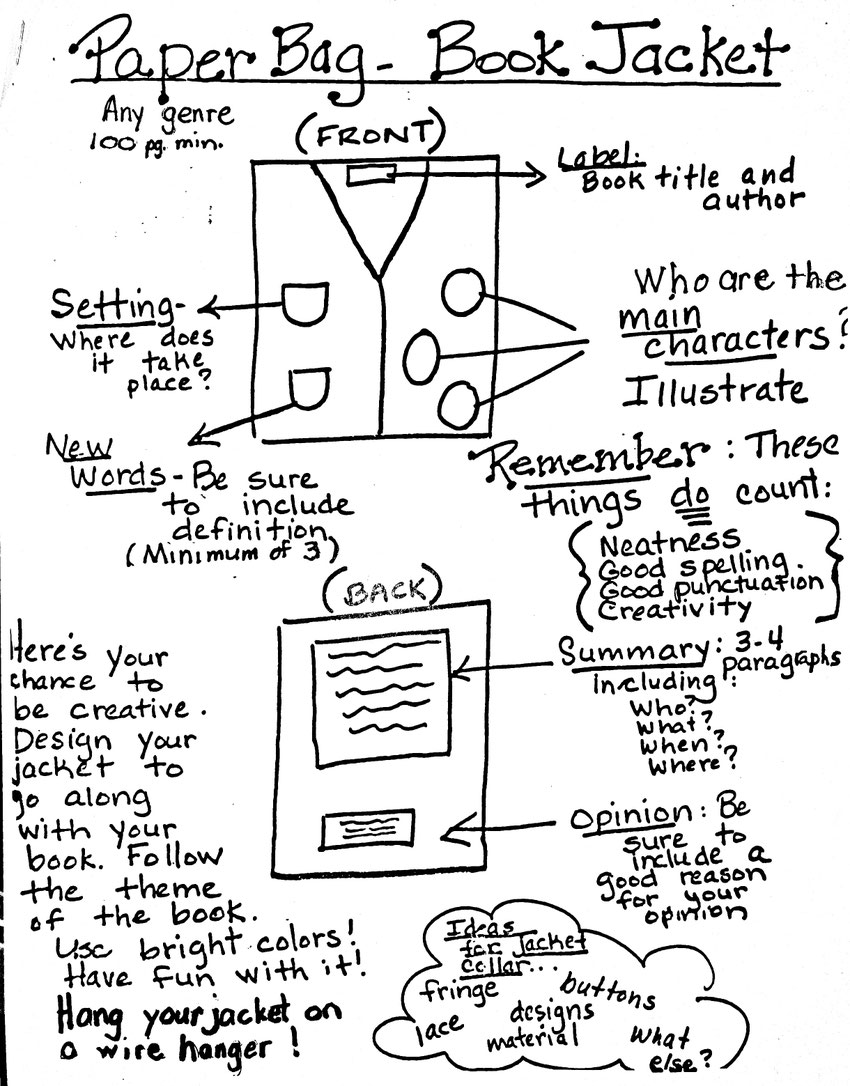 Paper Bag - Book Jacket
Any genre
100 pg. min.
(FRONT)
Label:
Book title and
author
Setting-
Where does
it take
place?
Who are the
main
characters?
Illustrate
New
Words - Be sure
to include
definition
(Minimum of 3)
Remember: These
things do count:
Neatness
Good spelling.
Good punctuation
Creativity
(BACK)
Summary: 3-4
paragraphs
including:
Who?
What?
When?
Where?
Opinion: Be
sure to
include a
good reason
for your
opinion
Here's your
chance to
be creative.
Design your
jacket to
go along
with your
book. Follow
the theme
of the book.
Use bright colors!
Have fun with it!
Hang your jacket on
a wire hanger!
Ideas
for Jacket
Collar...
fringe
buttons
lace
designs
material
What
else?